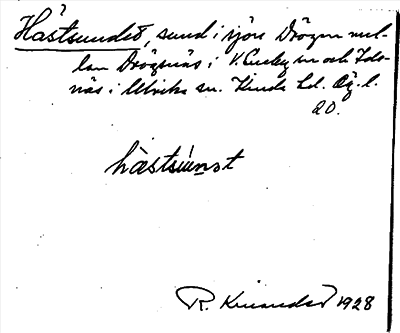 Hästsundet, sund i sjön Drögen mel-
lan Drögsnäs i V. Eneby sn och Ids-
näs i Ulrika sn. Kinda hd. Ög. l.
20.
hästsúnət
R. Kinander 1928